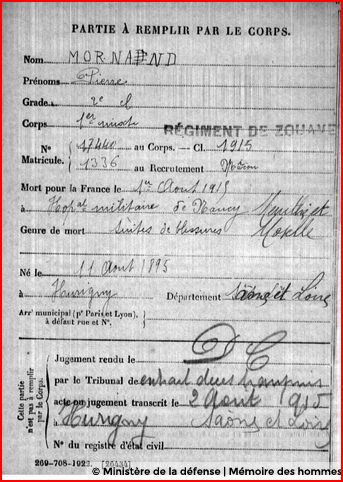 PARTIE À REMPLIR PAR LE CORPS.
Nom MORNAND
Prénoms Pierre
Grade 2e Cl
Corps 1er mixte RÉGIMENT DE ZOUAVE
N° 17440 au Corps. — Cl. 1915
Matricule. 1336 au Recrutement Mâcon
Mort pour la France le 1er Août 1915
à Hop al militaire de Nancy Meurthe et
Genre de mort Suites de blessures Moselle
Né le 11 Août 1895
à Hurigny Département Saône et Loire
Arr' municipal (pr Paris et Lyon),
à défaut rue et N°.
Cette partie n'est pas à remplir par le Corps.
D C
Jugement rendu le
par le Tribunal de extrait décès transmis
acte ou jugement transcrit le 2 Août 1915
à Hurigny Saône et Loire
N° du registre d'état civil
269-708-1922. [26434]
© Ministère de la défense | Mémoire des hommes